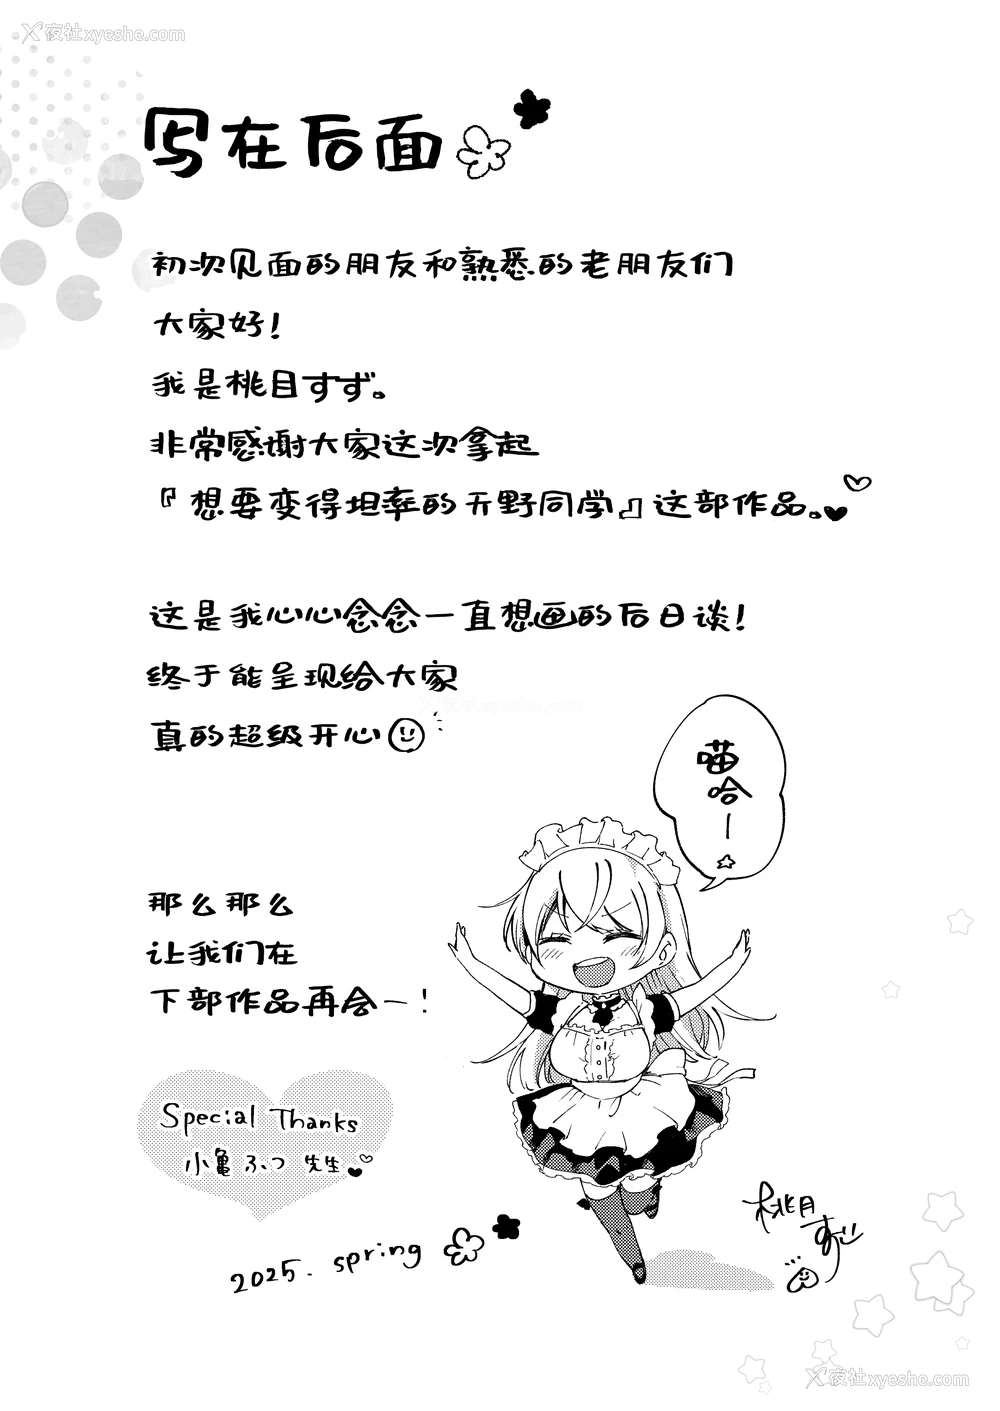 夜社xyeshe.com
写在后面
初次见面的朋友和熟悉的老朋友们
大家好!
我是桃目すず。
非常感谢大家这次拿起
『想要变得坦率的天野同学』这部作品。
这是我心心念念一直想画的后日谈!
终于能呈现给大家
真的超级开心
夜社xyeshe.com
喵
哈
ー
那么那么
让我们在
下部作品再会ー!
Special Thanks
小亀ふつ 先生
2025. spring
桃月
すず
夜社xyeshe.com